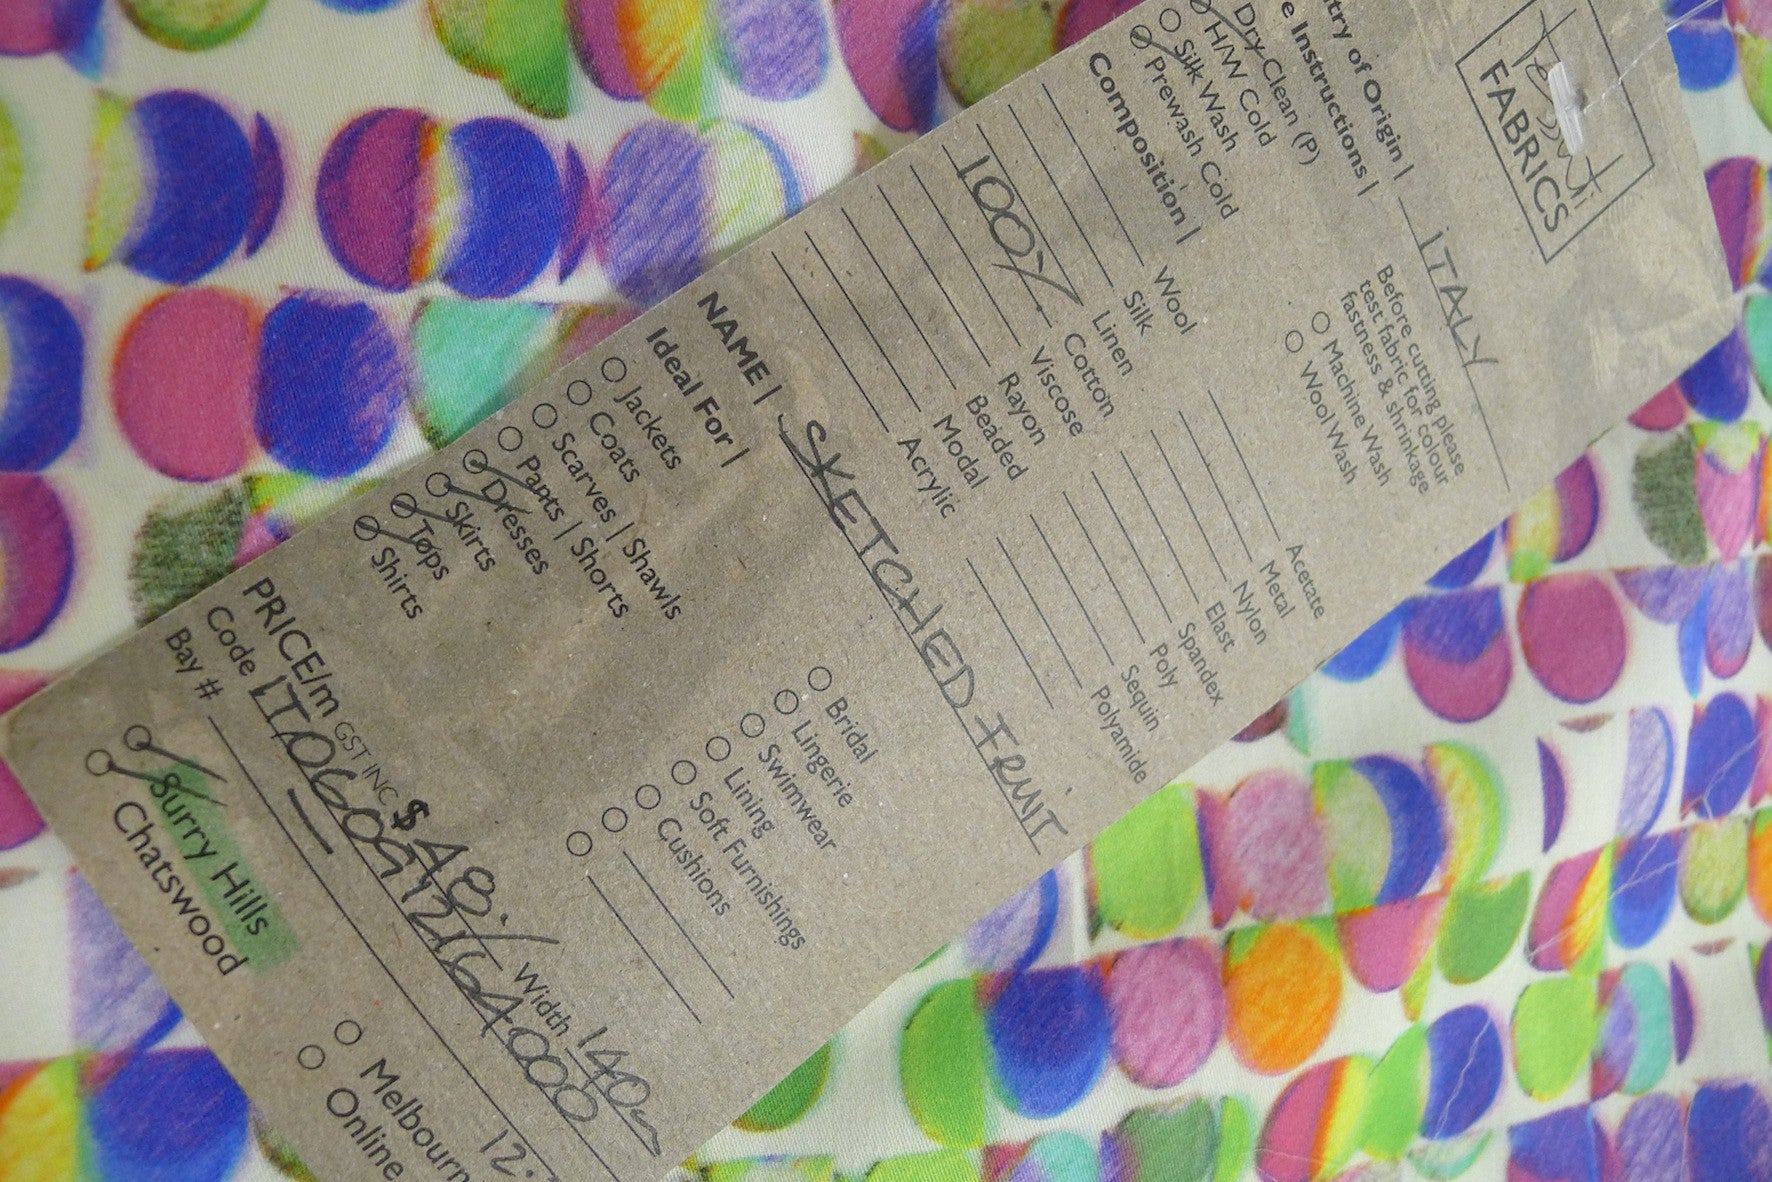 Tessuti
FABRICS
ntry of Origin | ITALY
e Instructions |
Dry Clean (P)
H/W Cold
Silk Wash
Prewash Cold
Before cutting please
test fabric for colour
fastness & shrinkage
Machine Wash
Wool Wash
Composition |
Wool
Silk
Linen
100% Cotton
Viscose
Rayon
Beaded
Modal
Acrylic
Acetate
Metal
Nylon
Elast
Spandex
Poly
Sequin
Polyamide
NAME | SKETCHED FRUIT
Ideal For |
Jackets
Coats
Scarves | Shawls
Pants | Shorts
Dresses
Skirts
Tops
Shirts
Bridal
Lingerie
Swimwear
Lining
Soft Furnishings
Cushions
PRICE/m GST INC $48.- Width 140
Code
Bay #
Surry Hills
Chatswood
Melbourn
Online